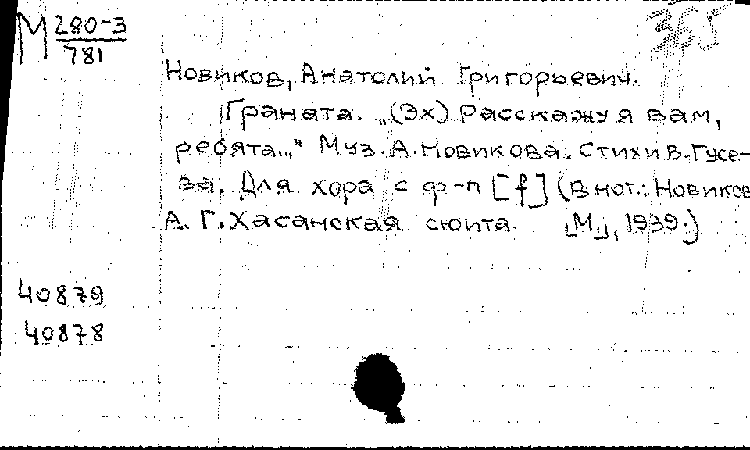 М 280-3
781
365
Новиков, Анатолий Григорьевич.
Граната. „(Эх) Расскажу я вам,
ребята..." Муз. А. Новикова. Стихи В. Гусе-
ва. Для хора с ф-п [f] (В нот.: Новиков
А. Г. Хасанская сюита. [М.], 1939.)
40879
40878